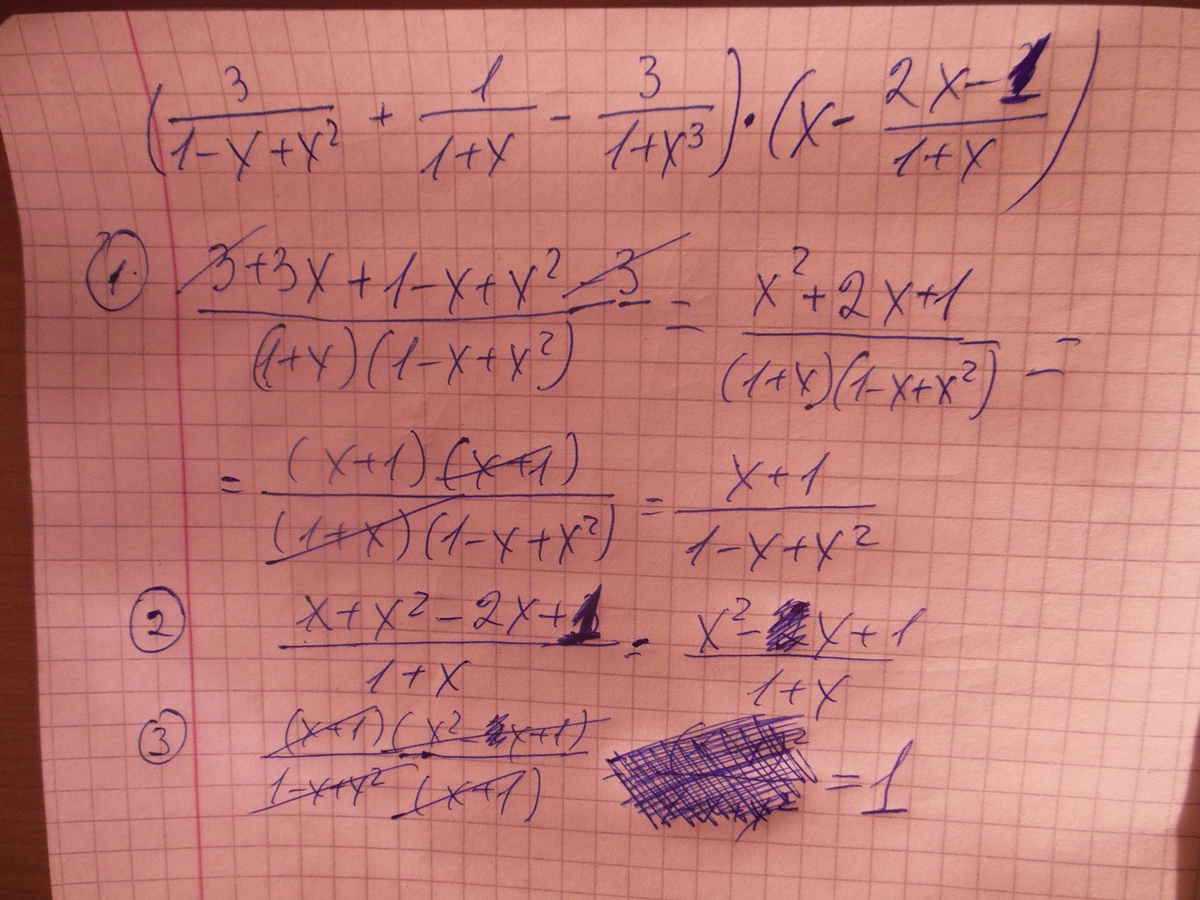 (3/(1-x+x²) + 1/(1+x) - 3/(1+x³)) · (x - (2x-1)/(1+x))
① (3+3x+1-x+x²-3)/((1+x)(1-x+x²)) = (x²+2x+1)/((1+x)(1-x+x²)) =
= ((x+1)(x+1))/((1+x)(1-x+x²)) = (x+1)/(1-x+x²)
② (x+x²-2x+1)/(1+x) = (x²-x+1)/(1+x)
③ ((x+1)(x²-x+1))/(1-x+x²(x+1)) = 1